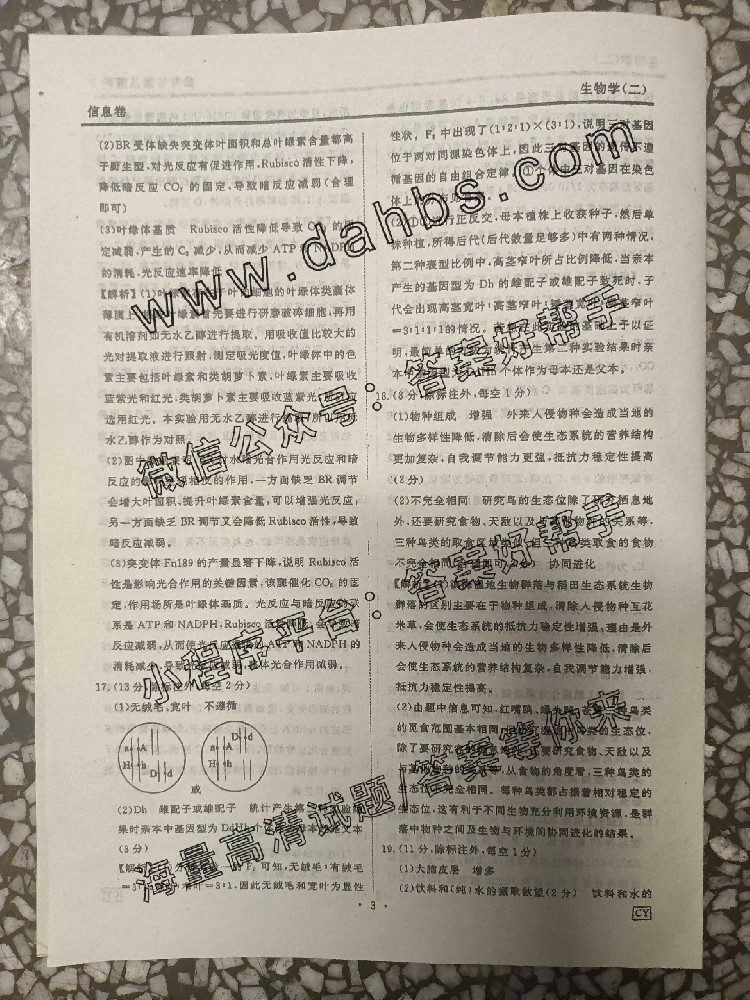 生物学(二)
信息卷
(2)BR受体缺失突变体叶面积和总叶绿素含量都高
于野生型,对光反应有促进作用,Rubisco活性下降,
降低暗反应CO₂的固定,导致暗反应减弱(合理
即可)
(3)叶绿体基质 Rubisco活性降低导致CO₂的固
定减弱,产生的C₃减少,从而减少ATP和NADPH
的消耗,光反应速率降低
【解析】(1)叶绿素 叶 细胞的叶绿体类囊体
薄膜上 先要进行研磨破碎细胞,再用
有机溶剂如无水乙醇进行提取。用吸收值比较大的
光对提取液进行照射,测定吸光度值,叶绿体中的色
素主要包括叶绿素和类胡萝卜素,叶绿素主要吸收
蓝紫光和红光,类胡萝卜素主要吸收蓝紫光,所以应
选用红光。本实验用无水乙醇进行 所以用无
水乙醇作为对照。
(2)图中 光合作用光反应和暗
反应的 的作用,一方面缺乏BR调节
会增大叶面积、提升叶绿素含量,可以增强光反应,
另一方面缺乏BR调节又会降低Rubisco活性,导致
暗反应减弱。
(3)突变体Fn189的产量显著下降,说明Rubisco活
性是影响光合作用的关键因素,该酶催化CO₂的固
定,作用场所是叶绿体基质。光反应与暗反应的联
系是ATP和NADPH,Rubisco活性降低,会导致暗
反应减弱,从而使光反应 ATP和NADPH的
消耗减少,导致光反应减弱,总体光合作用减弱。
17.(13分,除标注外,每空2分)
(1)无绒毛、宽叶 不遵循
a A D d H h
a A D d H h
或
(2)Dh 雌配子或雄配子 统计产生第二种实验结
果时亲本中基因型为DdHh个体 母本 父本
(3分)
【解析】(1)分 F₂可知,无绒毛:有绒毛
=3:1, 叶=3:1,因此无绒毛和宽叶为显性
性状。F₂中出现了(1:2:1)×(3:1),说明三对基因
位于两对同源染色体上,因此三对基因的遗传不遵
循基因的自由组合定律,①个体中三对基因在染色
体上的分布见答案。
(2)①②进行正反交,母本植株上收获种子,然后单
株种植,所得后代(后代数量足够多)中有两种情况,
第二种表型比例中,高茎窄叶所占比例降低,当亲本
产生的基因型为Dh的雌配子或雄配子致死时,子
代会出现高茎宽叶:高茎窄叶:矮茎宽叶:矮茎窄叶
=3:1:1:1的情况。 基础上予以证
明,最简单的 产生第二种实验结果时亲
本中基因型为 个体作为母本还是父本。
18.(8分,除标注外,每空1分)
(1)物种组成 增强 外来入侵物种会造成当地的
生物多样性降低,清除后会使生态系统的营养结构
更加复杂,自我调节能力更强,抵抗力稳定性提高
(2分)
(2)不完全相同 研究鸟的生态位除了研究栖息地
外,还要研究食物、天敌以及与其他物种的关系等,
三种鸟类的取食区域类似,但三种鸟类取食的食物
不完全相同(合理即可)(2分) 协同进化
【解析】(1)该湿地生物群落与稻田生态系统生物
群落的区别主要在于物种组成,清除入侵物种互花
米草,会使生态系统的抵抗力稳定性增强,理由是外
来入侵物种会造成当地的生物多样性降低,清除后
会使生态系统的营养结构复杂,自我调节能力增强,
抵抗力稳定性提高。
(2)由题中信息可知,红嘴鸥、绿头鸭、 鸟类
的觅食范围基本相同, 类的生态位,
除了要研究 要研究食物、天敌以及
与其他物种的关系等,从食物的角度看,三种鸟类的
生态位不完全相同。每种鸟类都占据着相对稳定的
生态位,这有利于不同生物充分利用环境资源,是群
落中物种之间及生物与环境间协同进化的结果。
19.(11分,除标注外,每空1分)
(1)大脑皮层 增多
(2)饮料和(纯)水的摄取欲望(2分) 饮料和水的
·3·
CY
www.dahbs.com
微信公众号:答案好帮手
小程序平台:答案好帮手
海量高清试题|答案等你来